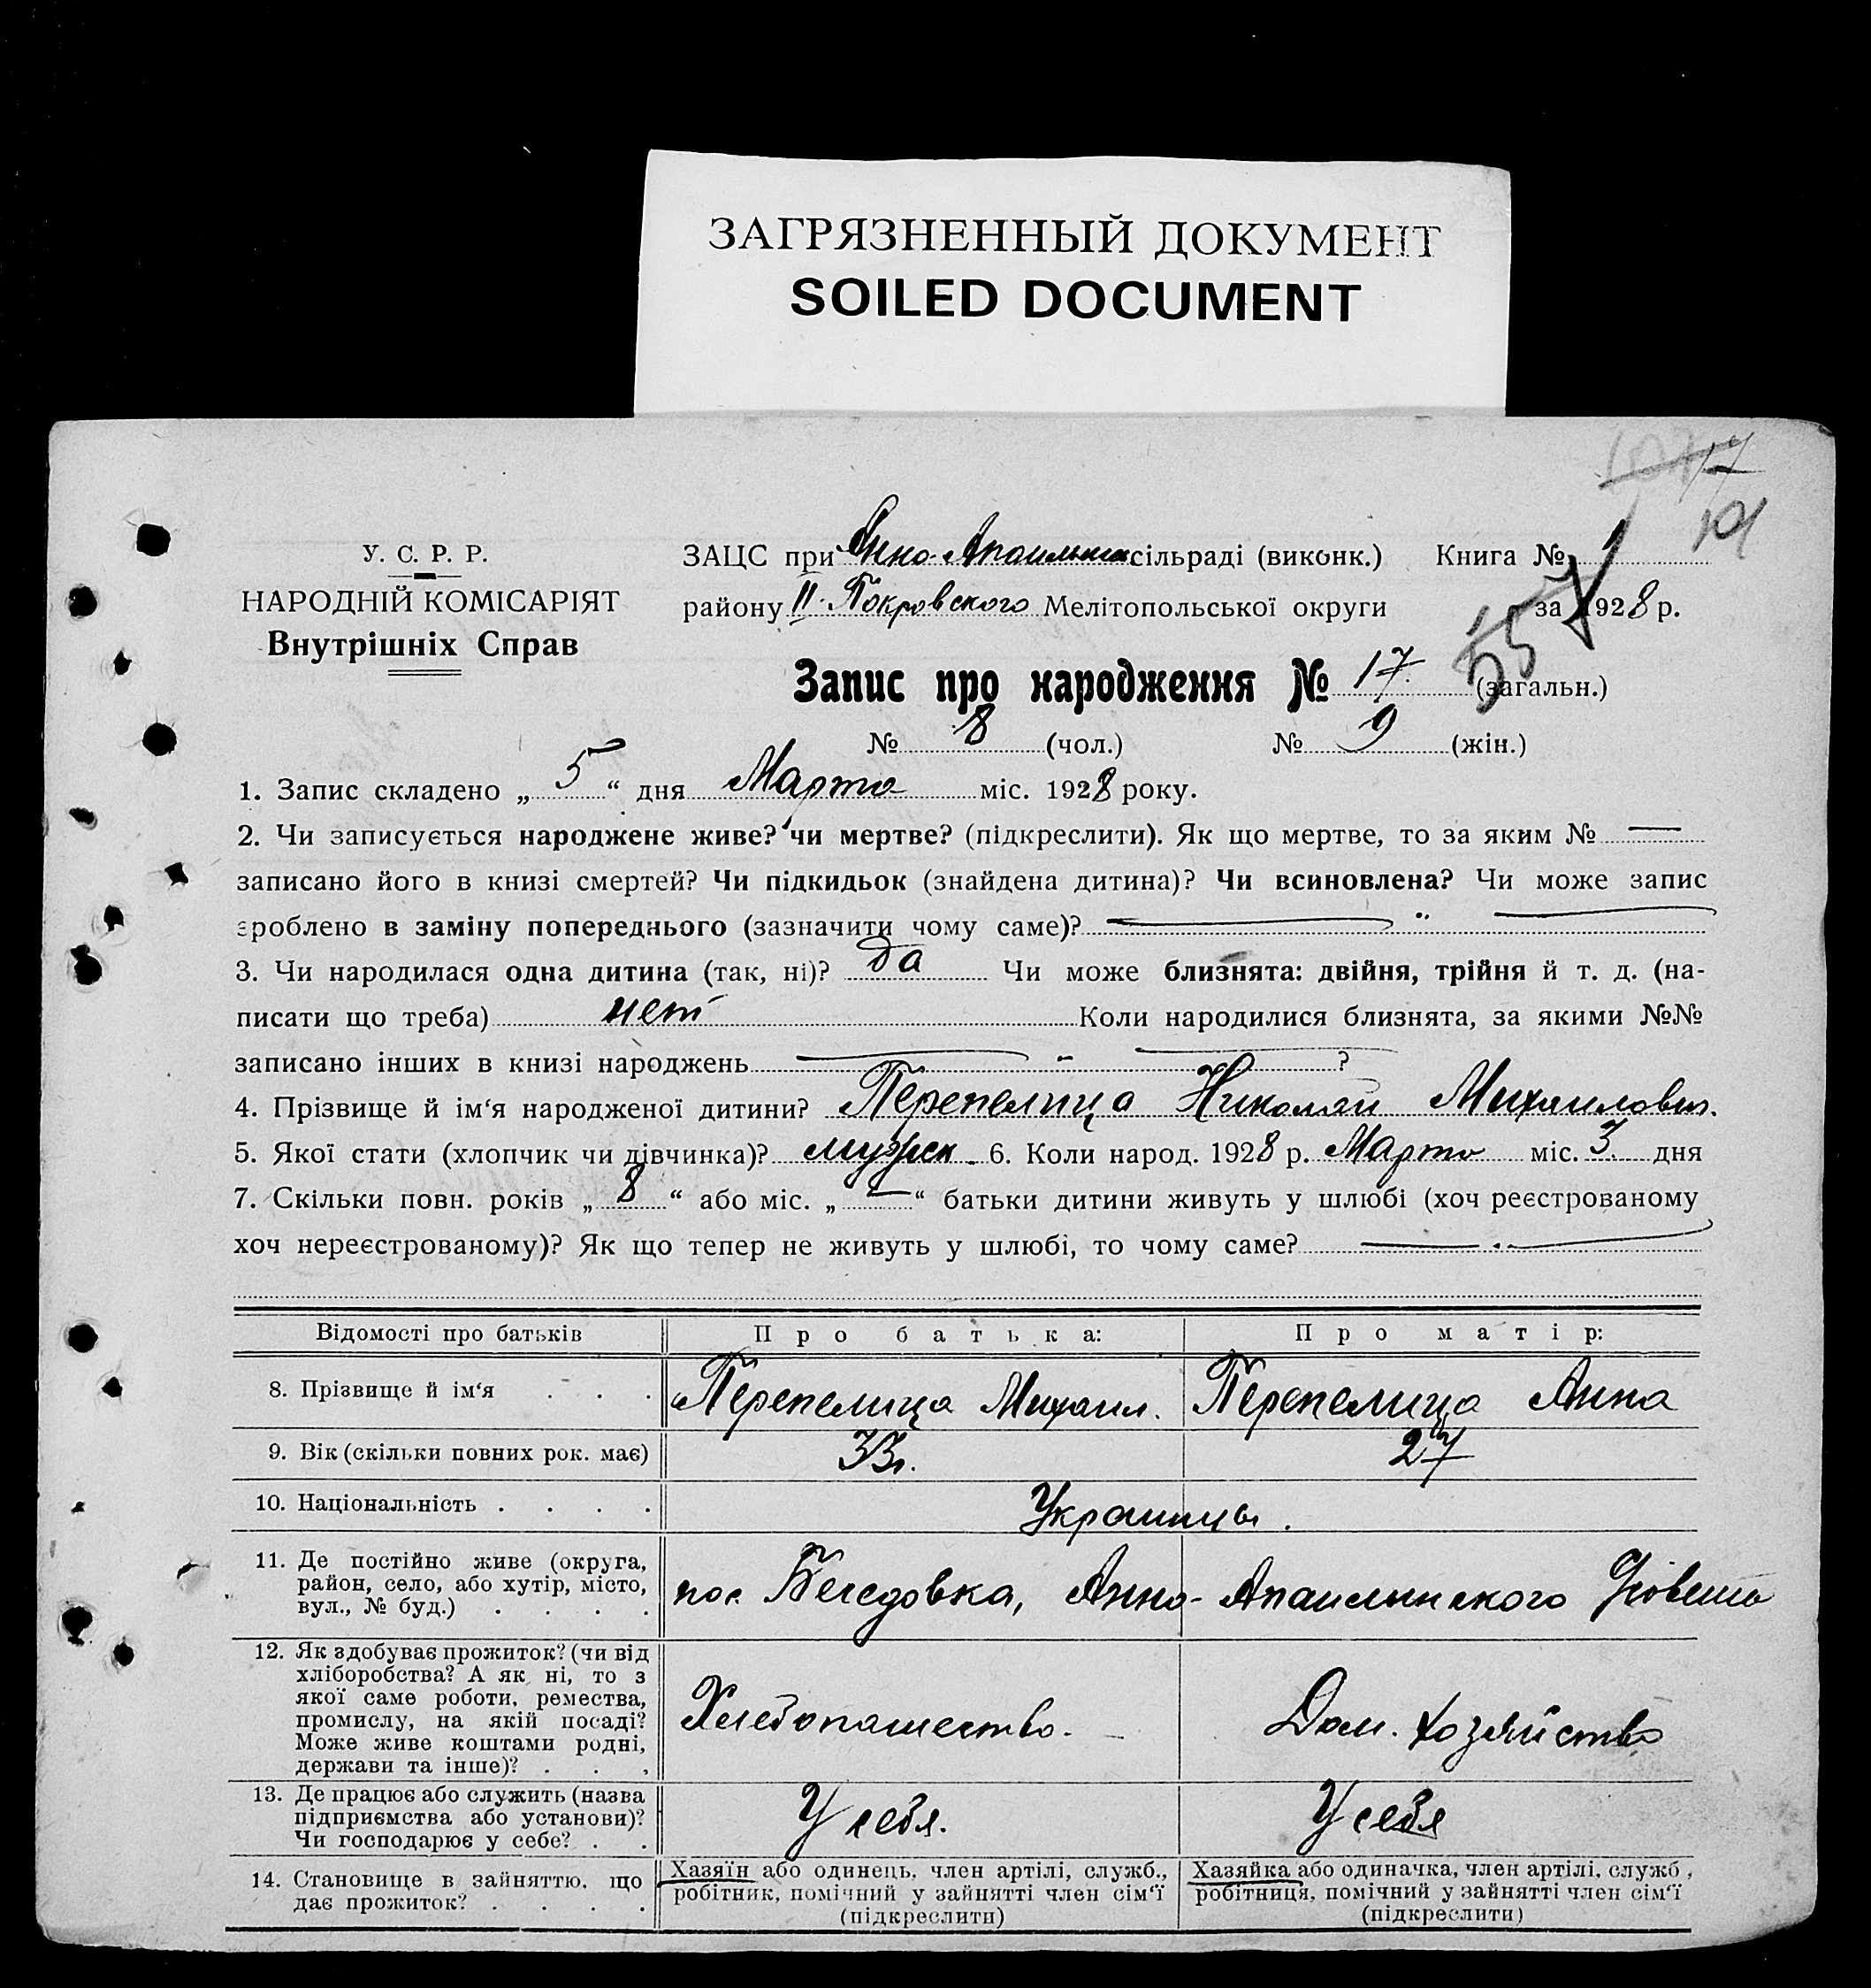 ЗАГРЯЗНЕННЫЙ ДОКУМЕНТ
SOILED DOCUMENT
17
101
У. С. Р. Р.
НАРОДНІЙ КОМІСАРІЯТ
Внутрішніх Справ
ЗАЦС при Анно- сільраді (виконк.) Книга № 1
району II-Покровского Мелітопольської округи за 1928 р.
Запис про народження № 17. (загальн.)
№ 8 (чол.) № 9 (жін.)
1. Запис складено „ 5 “ дня Марта міс. 1928 року.
2. Чи записується народжене живе? чи мертве? (підкреслити). Як що мертве, то за яким № —
записано його в книзі смертей? Чи підкидьок (знайдена дитина)? Чи всиновлена? Чи може запис
зроблено в заміну попереднього (зазначити чому саме)? — „ —
3. Чи народилася одна дитина (так, ні)? да Чи може близнята: двійня, трійня й т. д. (на-
писати що треба) нет Коли народилися близнята, за якими №№
записано інших в книзі народжень — „ — ?
4. Прізвище й ім‘я народженої дитини? Перепелица Николай Михаилович.
5. Якої стати (хлопчик чи дівчинка)? мужск. 6. Коли народ. 1928 р. Марта міс. 3. дня
7. Скільки повн. років „ 8 “ або міс. „ — “ батьки дитини живуть у шлюбі (хоч реєстрованому
хоч нереєстрованому)? Як що тепер не живуть у шлюбі, то чому саме? — „ —
Відомості про батьків Про батька: Про матір:
8. Прізвище й ім‘я . . . Перепелица Михаил. Перепелица Анна
9. Вік (скільки повних рок. має) 33г. 27
10. Національність . . . . Украинцы.
11. Де постійно живе (округа,
район, село, або хутір, місто,
вул., № буд.) . . . .
пос. Анно-
12. Як здобуває прожиток? (чи від
хліборобства? А як ні, то з
якої саме роботи, ремества,
промислу, на якій посаді?
Може живе коштами родні,
держави та інше)? . . .
Хлебопашество. Дом. хозяйство
13. Де працює або служить (назва
підприємства або установи)?
Чи господарює у себе? . .
У себя. У себя
14. Становище в зайняттю, що
дає прожиток? . . . .
Хазяїн або одинець, член артілі, служб.,
робітник, помічний у зайнятті член сім‘ї
(підкреслити)
Хазяйка або одиначка, член артілі, служб.,
робітниця, помічний у зайнятті член сім‘ї
(підкреслити)